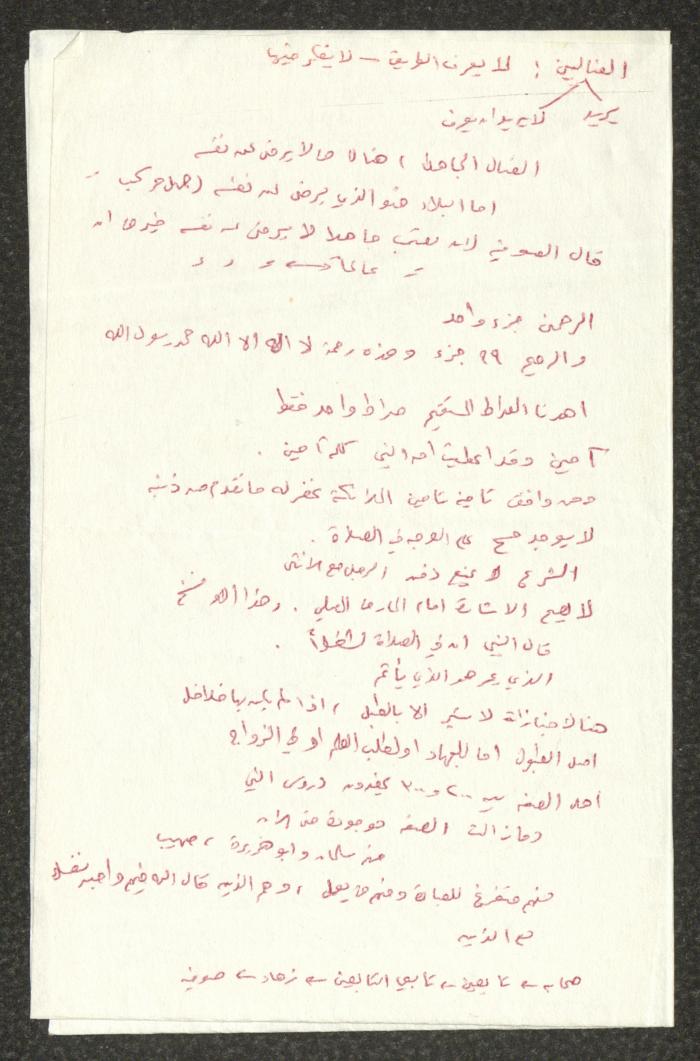 الضالين : لا يعرف الطريق – لا يفكر فيها
يريد لا يريد ان يعرف
الضال الجاهل ، هناك من لا يرضى عن نفسه
اما البلاء هو الذي يرضى عن نفسه (جهل مركب
قال الصوفية لان تصحب جاهلا لا يرضى عن نفسه خير من ان
عالما
الرحمن جزء واحد
والرحيم ٩٩ جزء وهذه رحمة لا اله الا الله محمد رسول الله
اهدنا الصراط المستقيم صراط واحد فقط
آمين وقد اعطيت امة النبي كلمة آمين .
ومن وافق تأمينه تأمين الملائكة غفر له ما تقدم من ذنبه
لا يوجد مسح على الوجه في الصلاة .
الشرع لا يمنع دفن الرجل مع الانثى
لا يصح الاشارة امام المار من المصلي . وهذا الامر نسخ
قال النبي ان في الصلاة لشغلاً .
الذي يمر هو الذي يأثم
هناك جنازات لا تسير الا بالطبل ، اذا لم يكن بها
اصل الطبول اما للجهاد او لطلب العلم او في الزواج
اهل الصفة بين ٢٠٠ و ٣٠٠ يحضرون دروس النبي
وما زالت الصفة موجودة حتى الان
من سلمان وابو هريرة ، صهيب
منهم متفرغ للعبادة ومنهم من يعمل ، وهم الذين قال الله فيهم واصبر نفسك
مع الذين
صحابة – تابعين – تابعي التابعين – زهاد – صوفية